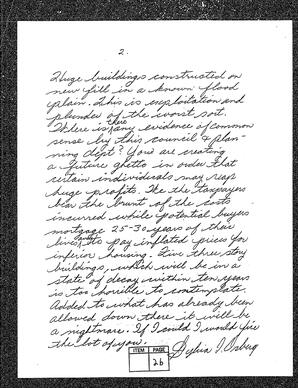 2.
Huge buildings constructed on
new fill in a known flood
plain. This is exploitation and
plunder of the worst sort.
Where is there any evidence of common
sense by this council & plan-
ning dept? You are creating
a future ghetto in order that
certain individuals may reap
huge profits. We the taxpayers
bear the brunt of the costs
incurred while potential buyers
mortgage 25-30 years of their
lives to pay inflated prices for
inferior housing. Five three story
buildings, which will be in a
state of decay within ten years
is too horrible to contemplate.
Added to what has already been
allowed down there it will be
a nightmare. If I could I would fire
the lot of you.
Sylvia I.
ITEM PAGE
26